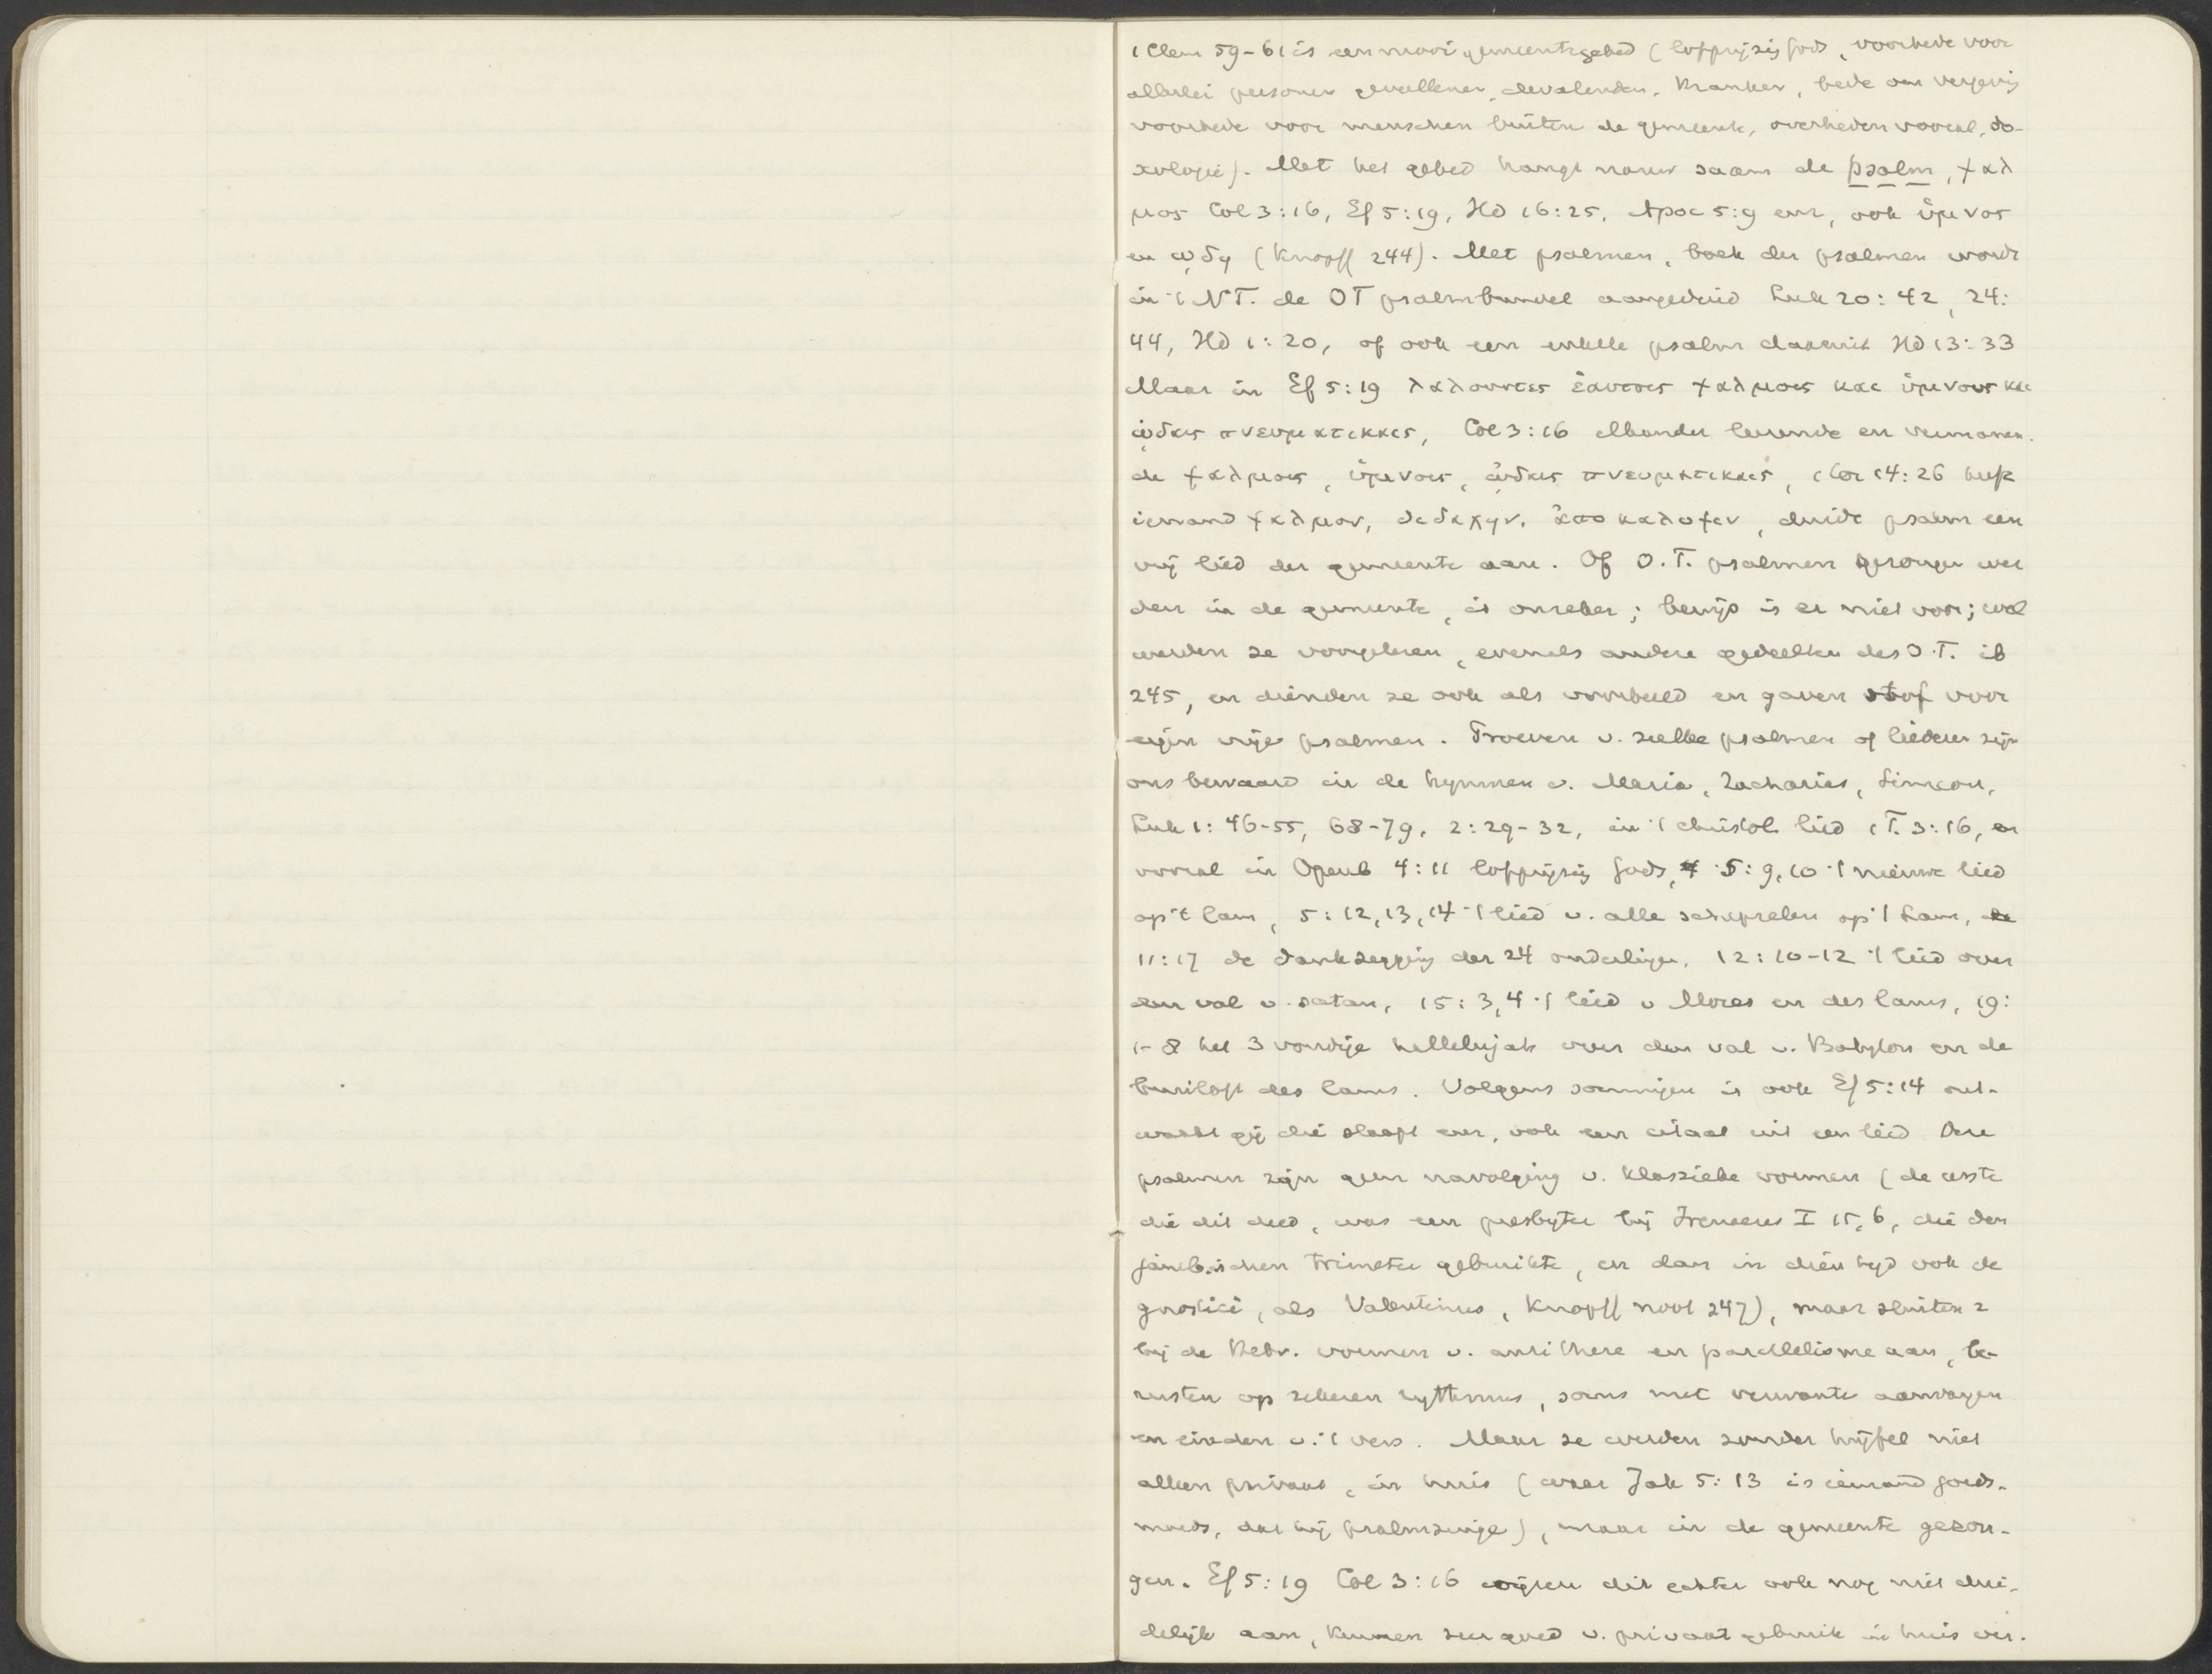 1 Clem 59-61 is een mooi gemeentegebed (lofprijzig Gods, voorbede voor
allerlei personen gevallenen, dwalenden, kranken, bede om vergevig
voorbede voor menschen buiten de gemeente, overheden vooral, do-
xologie). Met het gebed hangt nauw saam de psalm, ψαλ
μος Col 3:16, Ef 5:19, Hd 16:25, Apoc 5:9 enz, ook ὑμνος
en ῳδη (Knopff 244). Met psalmen, boek der psalmen wordt
in 't NT. de OT psalmbundel aangeduid Luk 20:42, 24:
44, Hd 1:20, of ook een enkele psalm daaruit Hd 13:33
Maar in Ef 5:19 λαλουντες ἑαυτοις ψαλμοις και ὑμνοις και
ᾠδαις πνευματικαις, Col 3:16 elkander leerende en vermanen-
de ψαλμοις, ὑμνοις, ᾠδαις πνευματικαις, 1 Cor 14:26 heeft
iemand ψαλμον, διδαχην, ἀποκαλυψιν, duidt psalm een
vrij lied der gemeente aan. Of O.T. psalmen gezongen wer
den in de gemeente, is onzeker; bewijs is er niet voor; wel
werden ze voorgelezen, evenals andere gedeelten des O.T. ib
245, en dienden ze ook als voorbeeld en gaven stof voor
eigen vrije psalmen. Proeven v. zulke psalmen of liederen zijn
ons bewaard in de hymnen v. Maria, Zacharias, Simeon,
Luk 1:46-55, 68-79, 2:29-32, in 't christol. lied 1 T. 3:16, en
vooral in Openb 4:11 lofprijzig Gods, 5:9,10 't nieuwe lied
op 't lam, 5:12,13,14 't lied v. alle schepselen op 't Lam,
11:17 de dankzegging der 24 ouderlingen, 12:10-12 't lied over
den val v. satan, 15:3,4 't lied v Mozes en des lams, 19:
1-8 het 3 voudige hallelujah over den val v. Babylon en de
bruiloft des lams. Volgens sommigen is ook Ef 5:14 ont-
waakt gij die slaapt enz, ook een citaat uit een lied Deze
psalmen zijn geen navolging v. klassieke vormen (de eerste
die dit deed, was een presbyter bij Irenaeus I 15,6, die den
jambischen trimeter gebruikte, en dan in dien tijd ook de
gnostici, als Valentinus, Knopff noot 247), maar sluiten z
bij de Hebr. vormen v. antithese en parallelisme aan, be-
rusten op zekeren rythmus, soms met verwante aanvangen
en einden v. 't vers. Maar ze werden zonder twijfel niet
alleen privaat, in huis (waar Jak 5:13 is iemand goeds-
moeds, dat hij psalmzinge), maar in de gemeente gezon-
gen. Ef 5:19 Col 3:16 wijzen dit echter ook nog niet dui-
delijk aan, kunnen zeer goed v. privaat gebruik in huis ver-